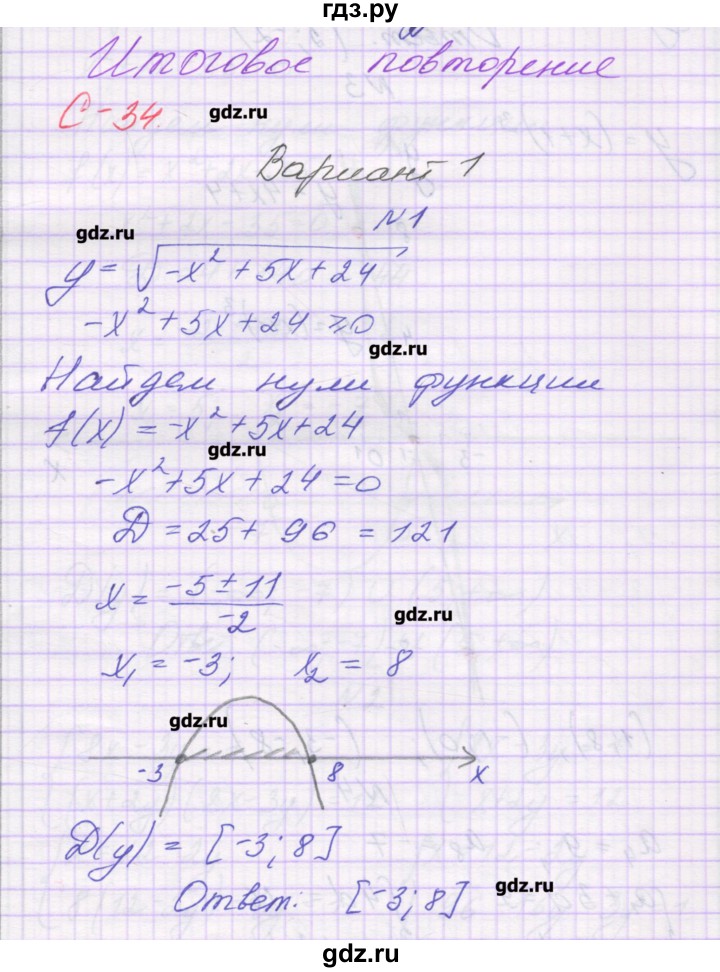 гдз.ру
Итоговое повторение
С-34.
gdz.ru
Вариант 1
№1
gdz.ru
y = √(-x² + 5x + 24)
-x² + 5x + 24 ≥ 0
gdz.ru
Найдем нули функции
f(x) = -x² + 5x + 24
gdz.ru
-x² + 5x + 24 = 0
D = 25 + 96 = 121
x = (-5 ± 11)/(-2)
gdz.ru
x₁ = -3; x₂ = 8
gdz.ru
-3 8 x
D(y) = [-3; 8]
gdz.ru
Ответ: [-3; 8]
gdz.ru